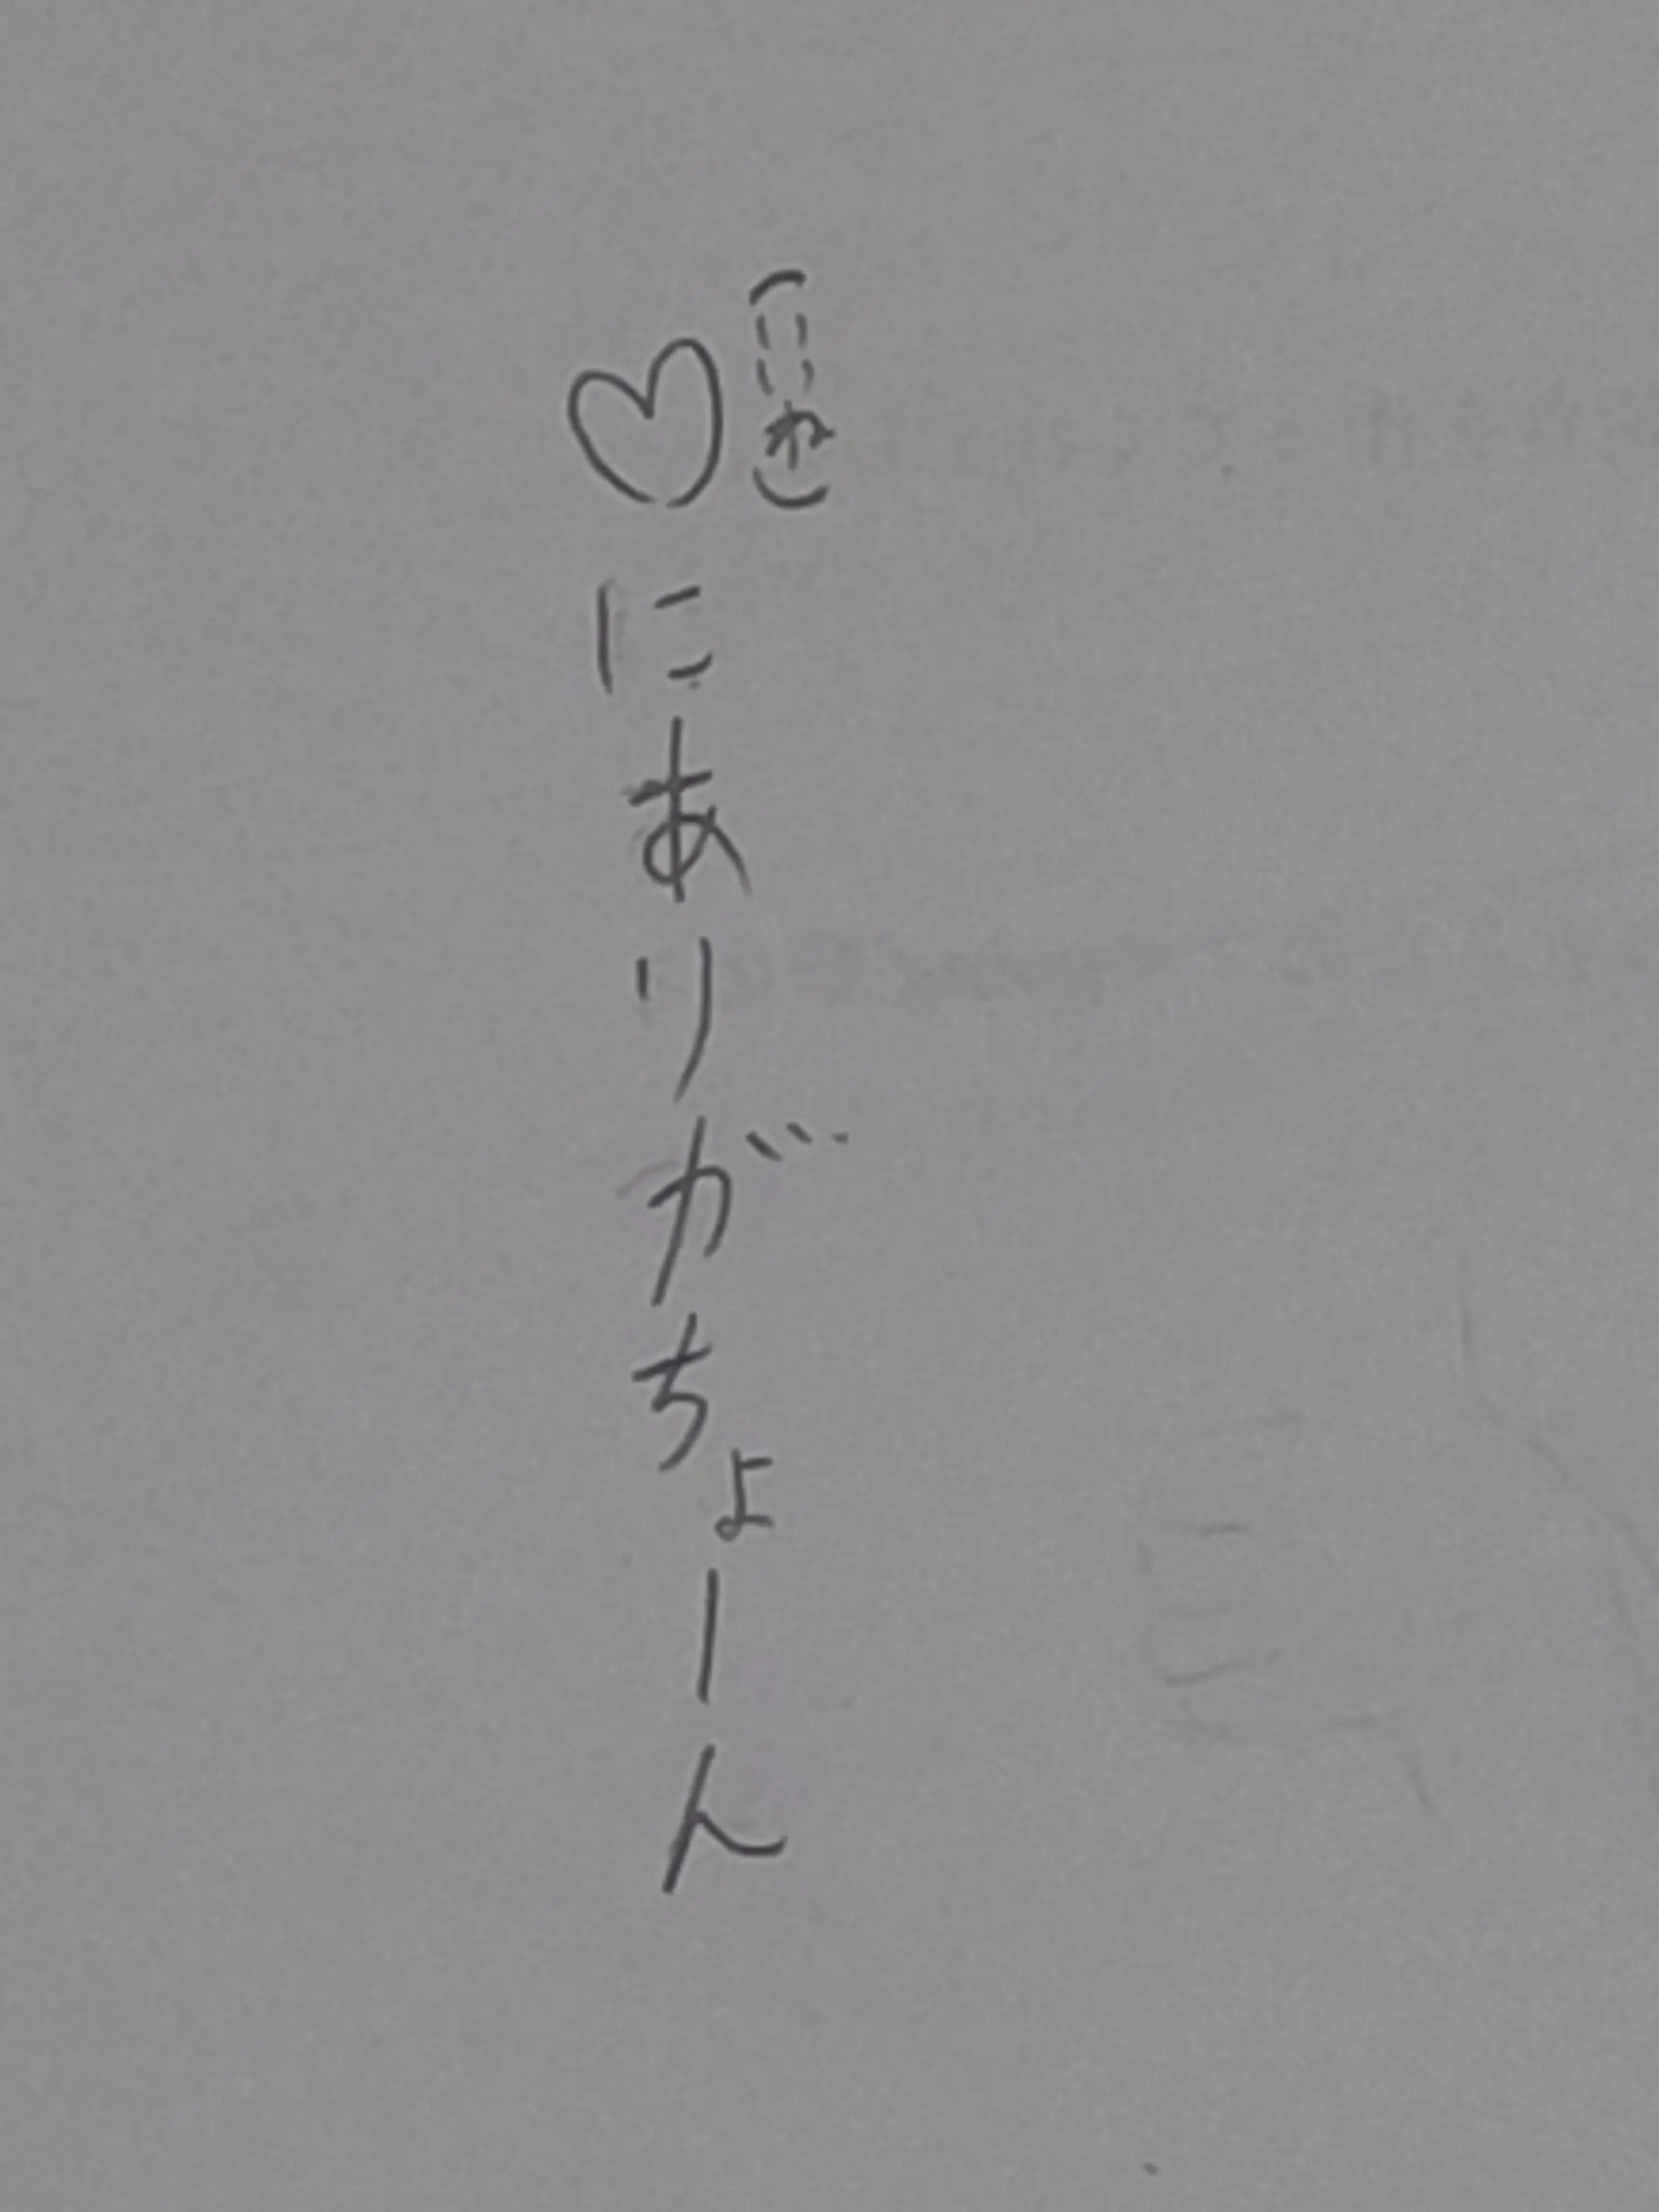 (いいね)
♡にありがちょーん